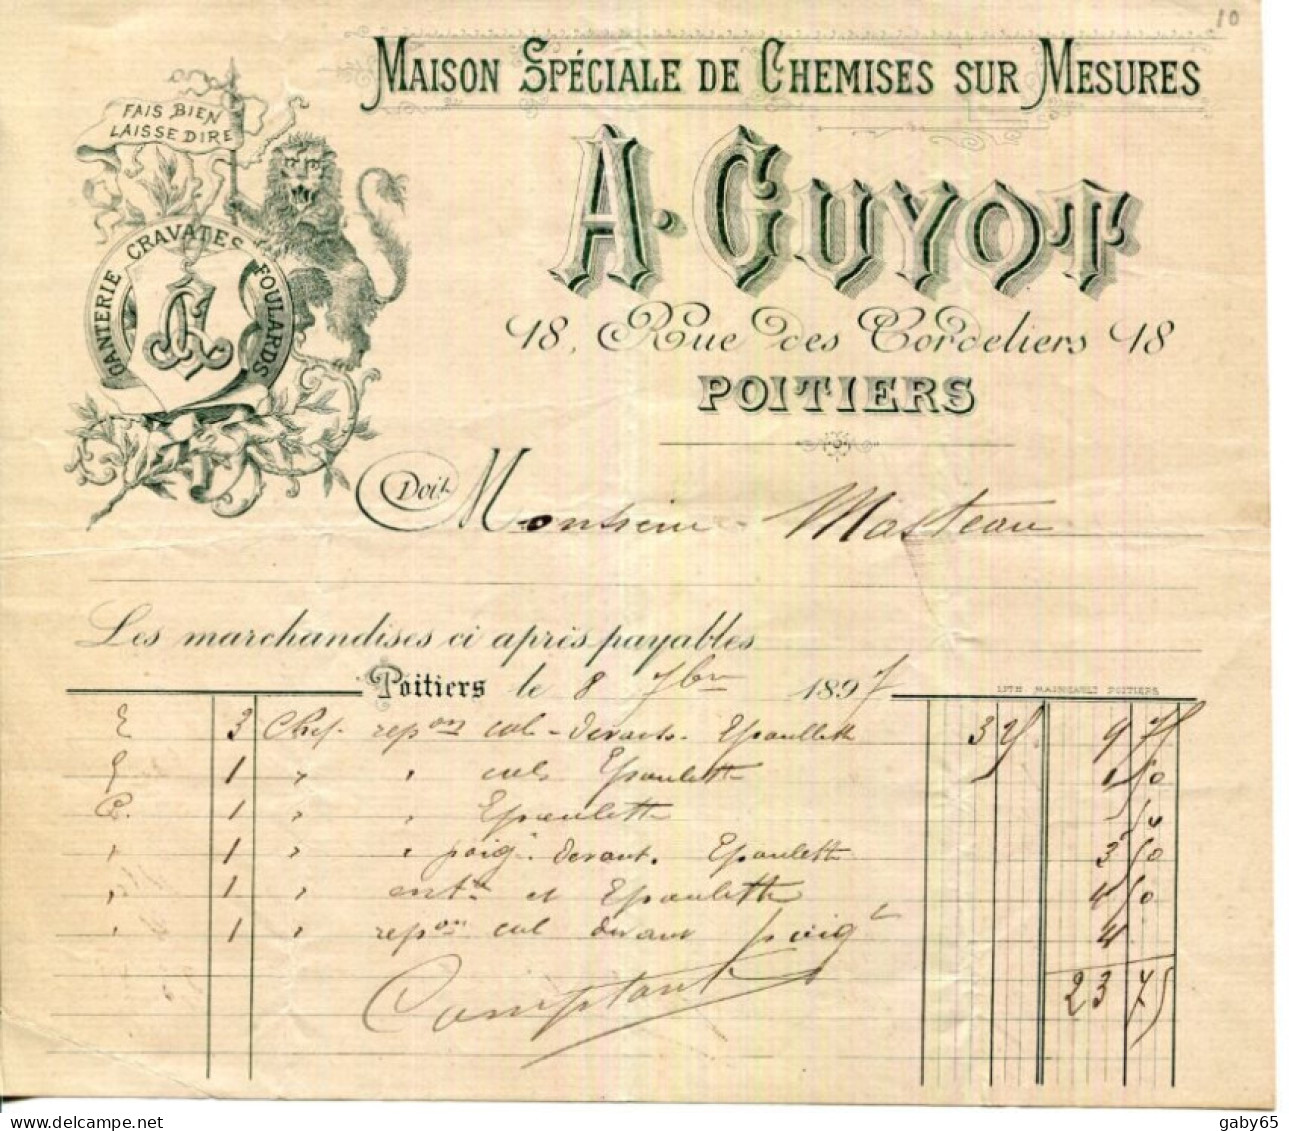 10
MAISON SPÉCIALE DE CHEMISES SUR MESURES
FAIS BIEN
LAISSE DIRE
GANTERIE CRAVATES FOULARDS
A. GUYOT
18, Rue des Cordeliers 18
POITIERS
Doit Monsieur Masteau
Les marchandises ci après payables
Poitiers le 8 7bre 1897
LITH MAINGAULT POITIERS
3 Chef. repon col - devants. Epaulette 3 25 9 75
1 " " col Epaulette 1 50
1 " " Epaulette
1 " " poig. devant. Epaulette 3 50
1 " et Epaulette 4 50
1 " repon col devant poig 4
23 75
Comptant
gaby65